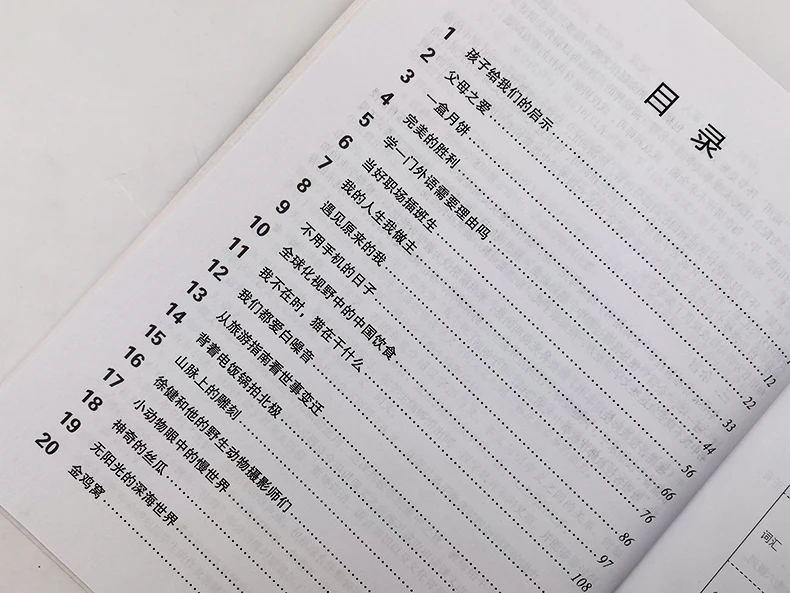 目录
1 孩子给我们的启示
2 父母之爱 12
3 一盒月饼 22
4 完美的胜利 33
5 学一门外语需要理由吗 44
6 当好职场插班生 56
7 我的人生我做主 66
8 遇见原来的我 76
9 不用手机的日子 86
10 全球化视野中的中国饮食 97
11 我不在时，猫在干什么 108
12 我们都爱白噪音
13 从旅游指南看世事变迁
14 背着电饭锅拍北极
15 山脉上的雕刻
16 徐健和他的野生动物摄影师们
17 小动物眼中的慢世界
18 神奇的丝瓜
19 无阳光的深海世界
20 金鸡窝
词汇